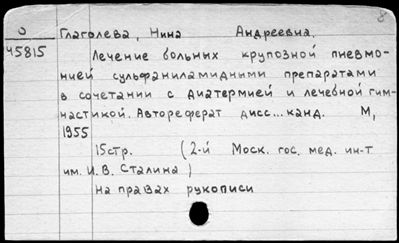 8
О Глаголева, Нина Андреевна.
45815 Лечение больных крупозной пневмо-
нией сульфаниламидными препаратами
в сочетании с диатермией и лечебной гим-
настикой. Автореферат дисс... канд. М,
1955
15стр. (2-й Моск. гос. мед. ин-т
им. И. В. Сталина)
На правах рукописи